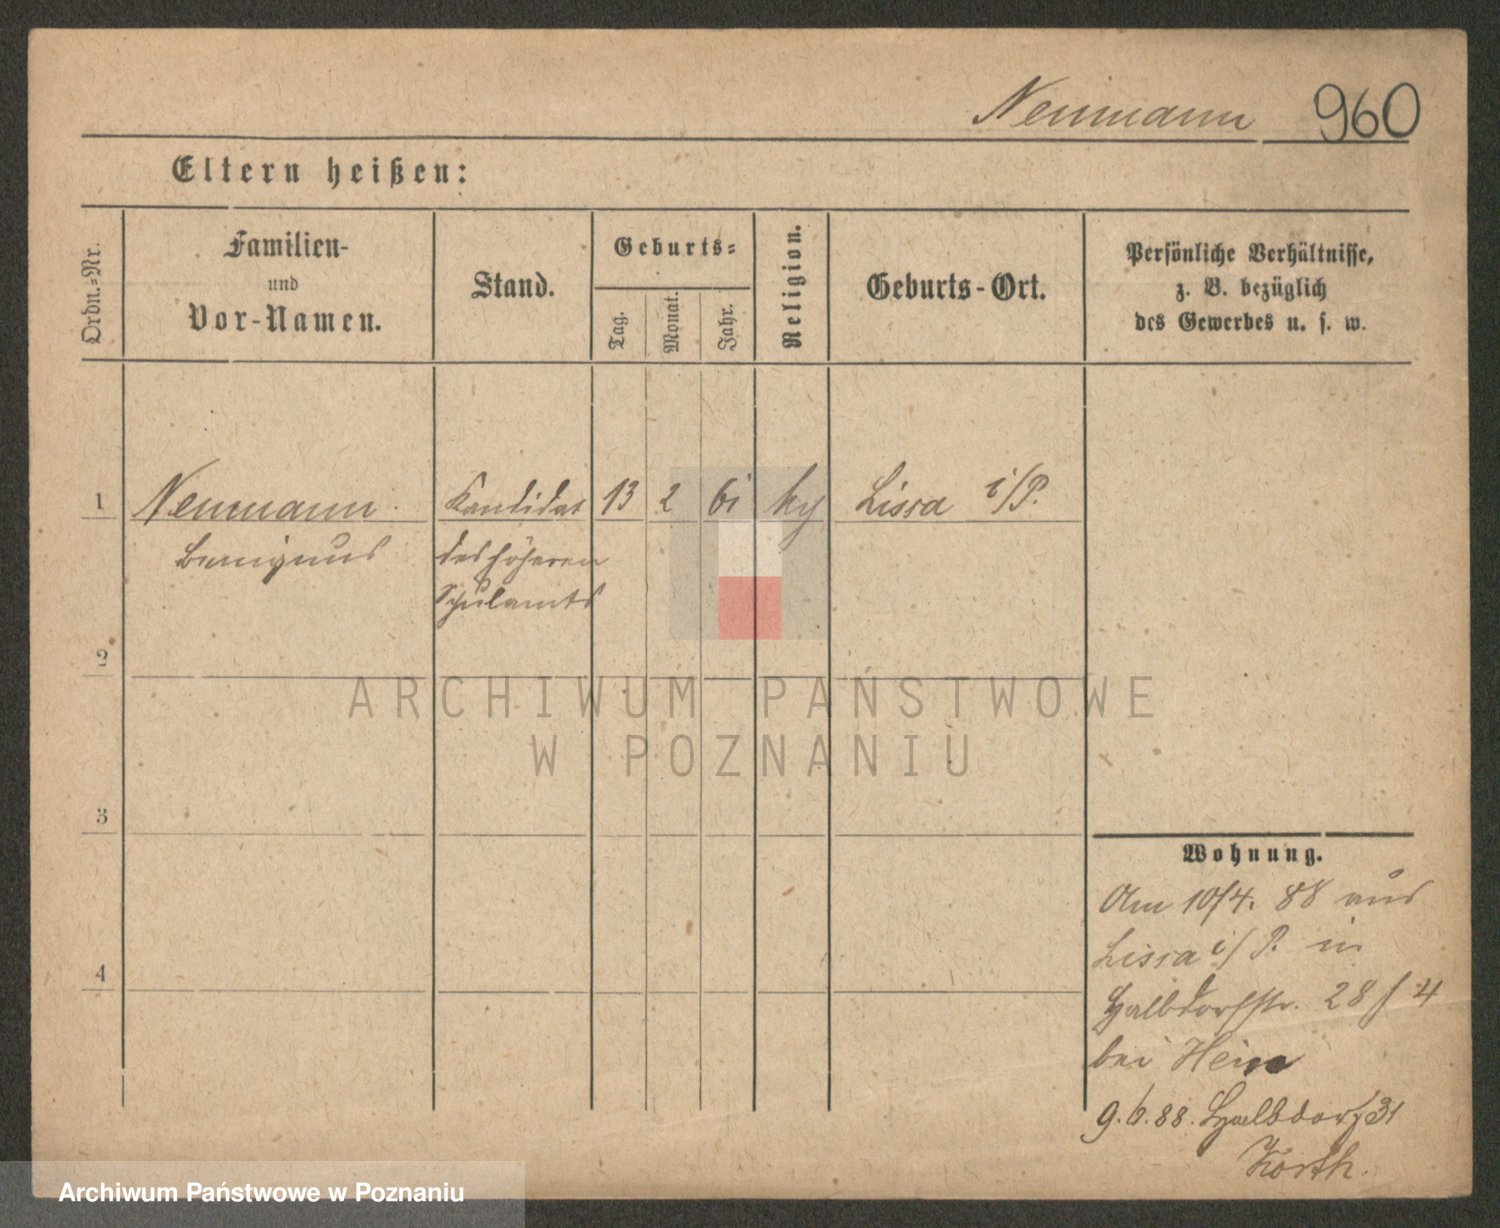 Neumann 960
Eltern heißen:
Ordn.-Nr.
Familien-
und
Vor-Namen.
Stand.
Geburts-
Tag.
Monat.
Jahr.
Religion.
Geburts-Ort.
Persönliche Verhältnisse,
z. B. bezüglich
des Gewerbes u. s. w.
1 Neumann Kandidat 13 2 61 Lissa i/P.
Benignus des höheren
Schulamts
2
3
4
ARCHIWUM PAŃSTWOWE
W POZNANIU
Wohnung.
Am 10/4. 88 aus
Lissa i/P. in
Halbdorfstr. 28 4
bei Hein
9.6.88. Halbdorf 31
Korth.
Archiwum Państwowe w Poznaniu